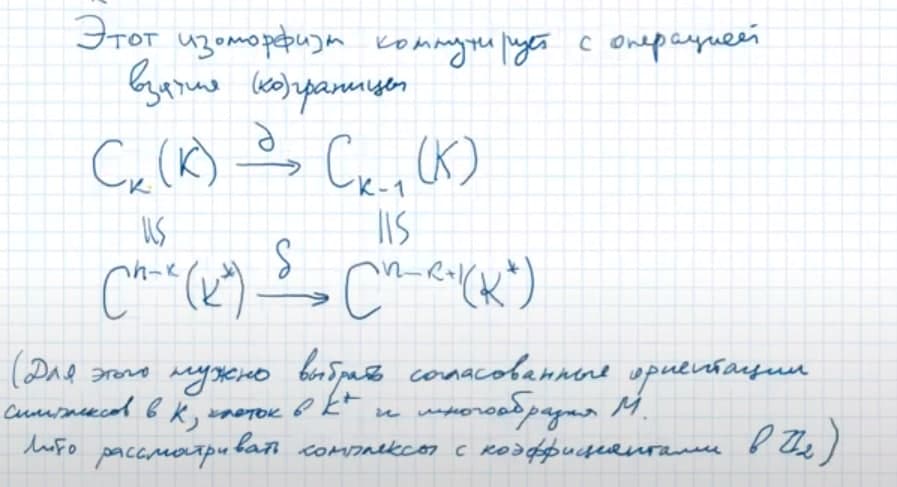 Этот изоморфизм коммутирует с операцией
взятия (ко)границы
C_k(K) —∂→ C_{k-1}(K)
≅ ≅
C^{n-k}(K*) —δ→ C^{n-k+1}(K*)
(Для этого нужно выбрать согласованные ориентации
симплексов в K, клеток в K* и многообразия M.
Либо рассматривать комплексы с коэффициентами в ℤ₂)